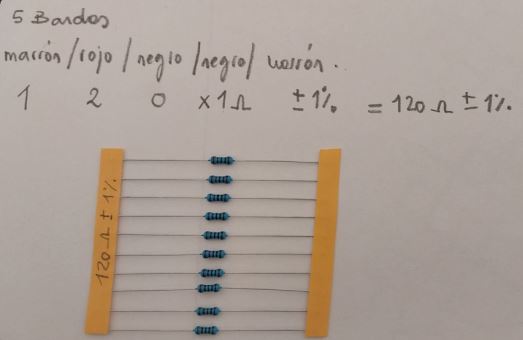 5 Bandas
marrón/rojo/negro/negro/marrón.
1 2 0 x1Ω ±1% = 120Ω ±1%.
120Ω ±1%